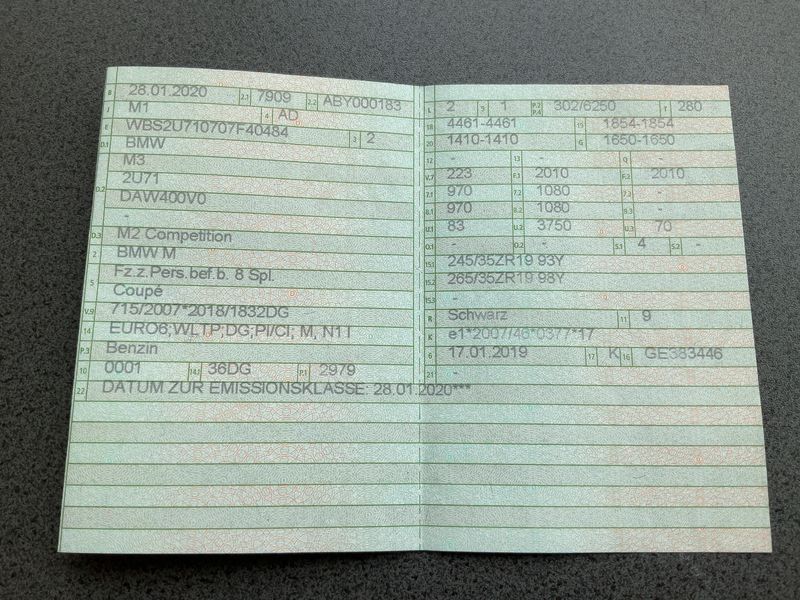 B 28.01.2020 2.1 7909 2.2 ABY000183
J M1 4 AD
E WBS2U710707F40484 3 2
D.1 BMW
M3
D.2 2U71
DAW400V0
-
D.3 M2 Competition
2 BMW M
5 Fz.z.Pers.bef.b. 8 Spl.
Coupé
V.9 715/2007*2018/1832DG
14 EURO6;WLTP;DG;PI/CI; M, N1 I
P.3 Benzin
10 0001 14.1 36DG P.1 2979
22 DATUM ZUR EMISSIONSKLASSE: 28.01.2020***
L 2 S 1 P.2 P.4 302/6250 T 280
18 4461-4461 19 1854-1854
20 1410-1410 G 1650-1650
12 - 13 - Q -
V.7 223 F.1 2010 F.2 2010
7.1 970 7.2 1080 7.3 -
8.1 970 8.2 1080 8.3 -
U.1 83 U.2 3750 U.3 70
O.1 - O.2 - S.1 4 S.2 -
15.1 245/35ZR19 93Y
15.2 265/35ZR19 98Y
15.3 -
R Schwarz 11 9
K e1*2007/46*0377*17
6 17.01.2019 17 K 16 GE383446
21 -